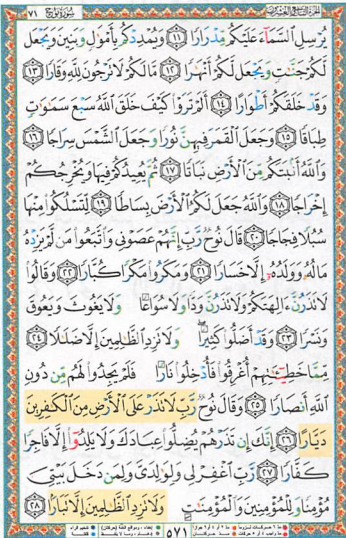 ٧١ سورة نوح
يُرْسِلِ ٱلسَّمَآءَ عَلَيْكُم مِّدْرَارًا ﴿١١﴾ وَيُمْدِدْكُم بِأَمْوَٰلٍ وَبَنِينَ وَيَجْعَل
لَّكُمْ جَنَّـٰتٍ وَيَجْعَل لَّكُمْ أَنْهَـٰرًا ﴿١٢﴾ مَّا لَكُمْ لَا تَرْجُونَ لِلَّهِ وَقَارًا ﴿١٣﴾
وَقَدْ خَلَقَكُمْ أَطْوَارًا ﴿١٤﴾ أَلَمْ تَرَوْا۟ كَيْفَ خَلَقَ ٱللَّهُ سَبْعَ سَمَـٰوَٰتٍ
طِبَاقًا ﴿١٥﴾ وَجَعَلَ ٱلْقَمَرَ فِيهِنَّ نُورًا وَجَعَلَ ٱلشَّمْسَ سِرَاجًا ﴿١٦﴾
وَٱللَّهُ أَنۢبَتَكُم مِّنَ ٱلْأَرْضِ نَبَاتًا ﴿١٧﴾ ثُمَّ يُعِيدُكُمْ فِيهَا وَيُخْرِجُكُمْ
إِخْرَاجًا ﴿١٨﴾ وَٱللَّهُ جَعَلَ لَكُمُ ٱلْأَرْضَ بِسَاطًا ﴿١٩﴾ لِّتَسْلُكُوا۟ مِنْهَا
سُبُلًا فِجَاجًا ﴿٢٠﴾ قَالَ نُوحٌ رَّبِّ إِنَّهُمْ عَصَوْنِى وَٱتَّبَعُوا۟ مَن لَّمْ يَزِدْهُ
مَالُهُۥ وَوَلَدُهُۥٓ إِلَّا خَسَارًا ﴿٢١﴾ وَمَكَرُوا۟ مَكْرًا كُبَّارًا ﴿٢٢﴾ وَقَالُوا۟
لَا تَذَرُنَّ ءَالِهَتَكُمْ وَلَا تَذَرُنَّ وَدًّا وَلَا سُوَاعًا وَلَا يَغُوثَ وَيَعُوقَ
وَنَسْرًا ﴿٢٣﴾ وَقَدْ أَضَلُّوا۟ كَثِيرًا وَلَا تَزِدِ ٱلظَّـٰلِمِينَ إِلَّا ضَلَـٰلًا ﴿٢٤﴾
مِّمَّا خَطِيٓـَٔـٰتِهِمْ أُغْرِقُوا۟ فَأُدْخِلُوا۟ نَارًا فَلَمْ يَجِدُوا۟ لَهُم مِّن دُونِ
ٱللَّهِ أَنصَارًا ﴿٢٥﴾ وَقَالَ نُوحٌ رَّبِّ لَا تَذَرْ عَلَى ٱلْأَرْضِ مِنَ ٱلْكَـٰفِرِينَ
دَيَّارًا ﴿٢٦﴾ إِنَّكَ إِن تَذَرْهُمْ يُضِلُّوا۟ عِبَادَكَ وَلَا يَلِدُوٓا۟ إِلَّا فَاجِرًا
كَفَّارًا ﴿٢٧﴾ رَّبِّ ٱغْفِرْ لِى وَلِوَٰلِدَىَّ وَلِمَن دَخَلَ بَيْتِىَ
مُؤْمِنًا وَلِلْمُؤْمِنِينَ وَٱلْمُؤْمِنَـٰتِ وَلَا تَزِدِ ٱلظَّـٰلِمِينَ إِلَّا تَبَارًۢا ﴿٢٨﴾
٥٧١